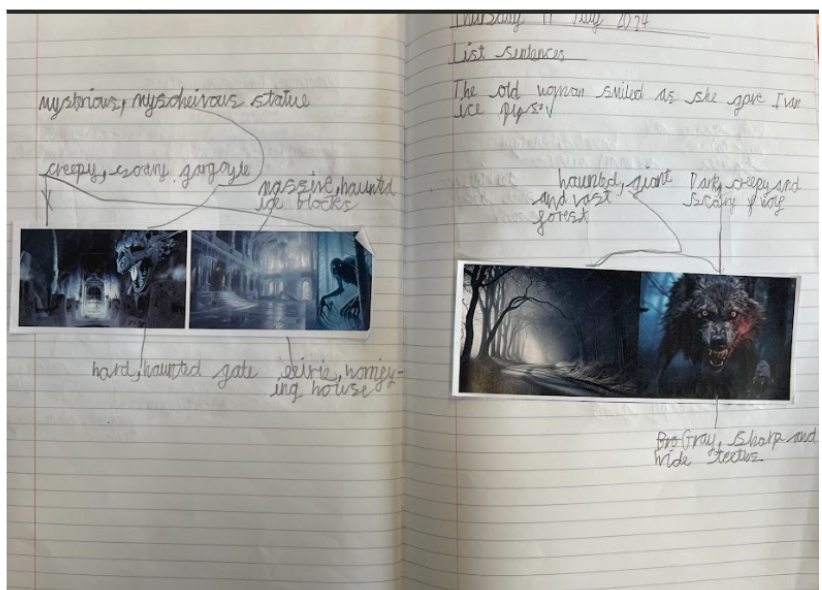 mystirious, myscheivous statue
creepy, scary gargoyle
massive, haunted
ice blocks
hard, haunted gate
eeirie, horrify-
ing house
Thursday 11 July 2024
List sentences
The old woman smiled as she gave Ivan
ice
haunted, giant
and vast
forest
Dark, creepy and
scary
Gray, sharp and
wide